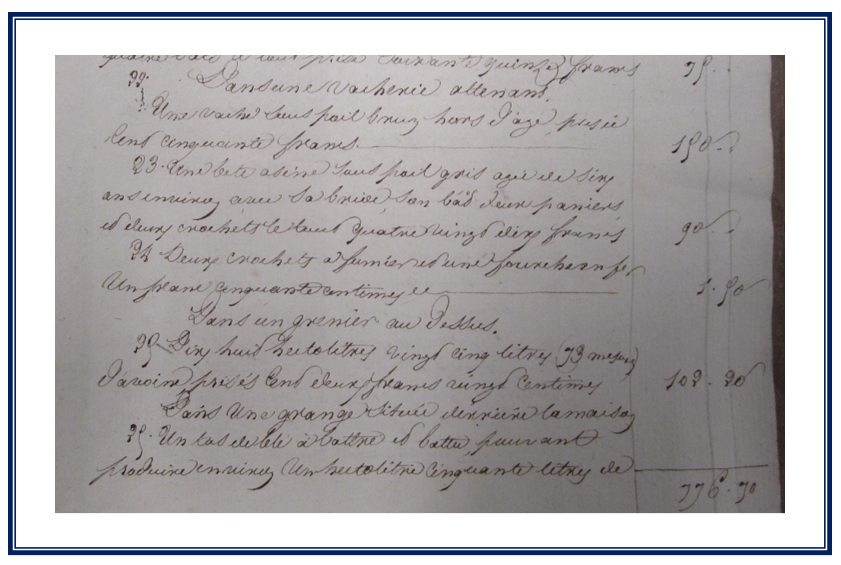 quatre vaches à lait prisé soixante quinze francs 75..
22. Dans une vacherie attenant.
Une vache sous poil brun hors d'age, prisée
Cent cinquante francs. 150..
23. Une bete asine sous poil gris agée de six
ans environ avec sa bride son bâd deux paniers
et deux crochets le tout quatre vingd dix francs 90..
24 Deux crochets a fumier et une fourche en fer
Un franc cinquante centimes 1.50
Dans un grenier au Dessus.
25 Dix huit hectolitres vingd cinq litres (73 mesures)
D'avoine prisés Cent deux francs vingd centimes 102.20
Dans Une grange située derrière la maison
25. Un tas de blé à battre et battu, pouvant
produire environ Un hectolitre cinquante litres de
776.70